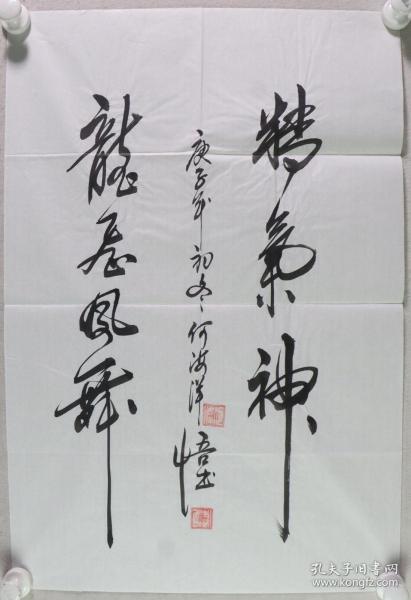 精氣神
庚子年初冬何海洋
悟书
龍飛鳳舞
孔夫子旧书网
www.kongfz.com